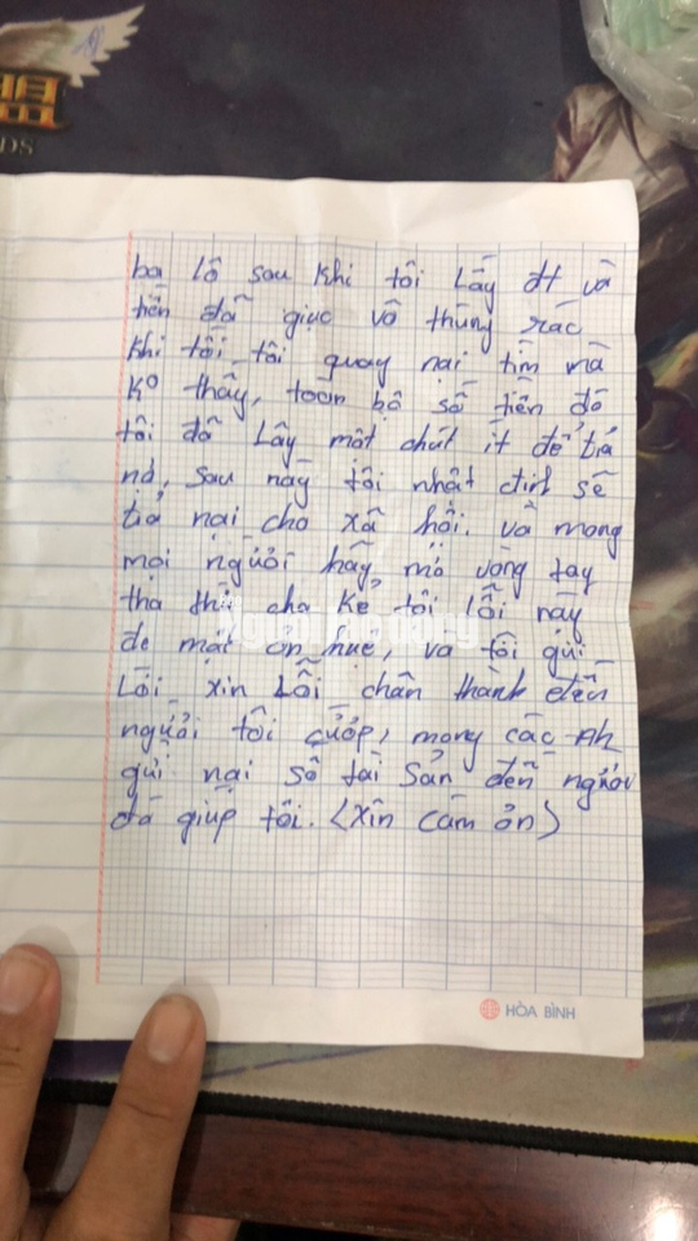 DS
ba lô sau khi tôi Lấy đt và
tiền đã giục vô thùng rác
khi tôi tôi quay nại tìm mà
Ko thấy, toàn bộ số tiền đó
tôi đã Lấy một chút ít để trả
nợ, sau này tôi nhất định sẽ
trả nại cho xã hội. và mong
mọi người hãy mở vòng tay
tha thứ cho kẻ tội lỗi này
Người lao động
de một ơn huệ, va tôi gửi
Lời xin Lỗi chân thành đến
người tôi cướp, mong các Ah
gửi nại số tài sản đến người
đã giúp tôi. <Xin cảm ơn>
HÒA BÌNH